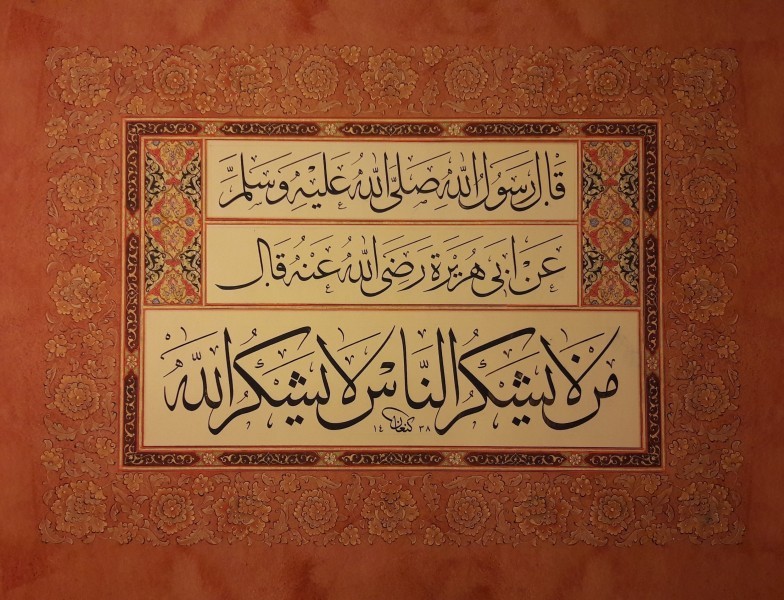 قَالَ رَسُولُ اللّٰهِ صَلَّى اللّٰهُ عَلَيْهِ وَسَلَّمَ
عَنْ اَبِى هُرَيْرَةَ رَضِىَ اللّٰهُ عَنْهُ قَالَ
مَنْ لَا يَشْكُرُ النَّاسَ لَا يَشْكُرُ اللّٰهَ
كنعان
١٤ ٣٨